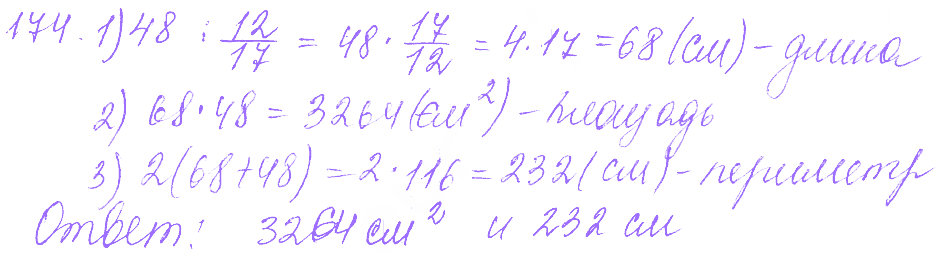 174. 1) 48 : 12/17 = 48 · 17/12 = 4 · 17 = 68 (см) – длина
2) 68 · 48 = 3264 (см²) – площадь
3) 2(68+48) = 2 · 116 = 232 (см) – периметр
Ответ: 3264 см² и 232 см